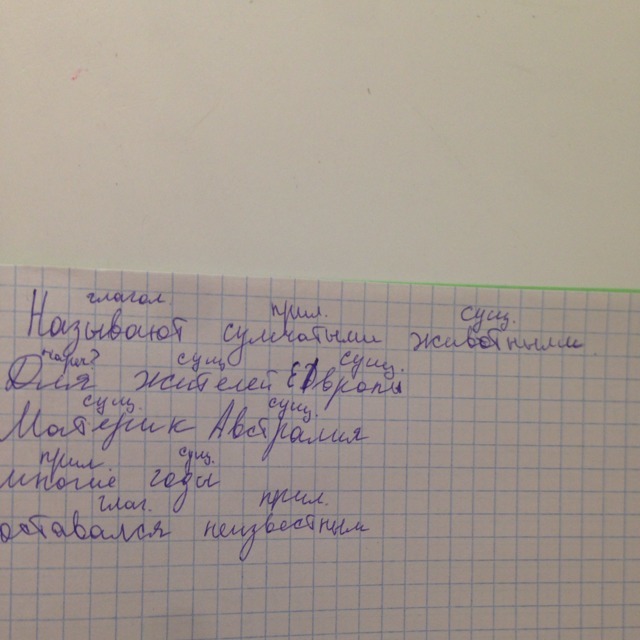 глагол. прил. сущ.
Называют сумчатыми животными.
нареч? сущ. сущ.
Для жителей Европы
сущ. сущ.
Материк Австралия
прил. сущ.
многие годы
глаг. прил.
оставался неизвестным